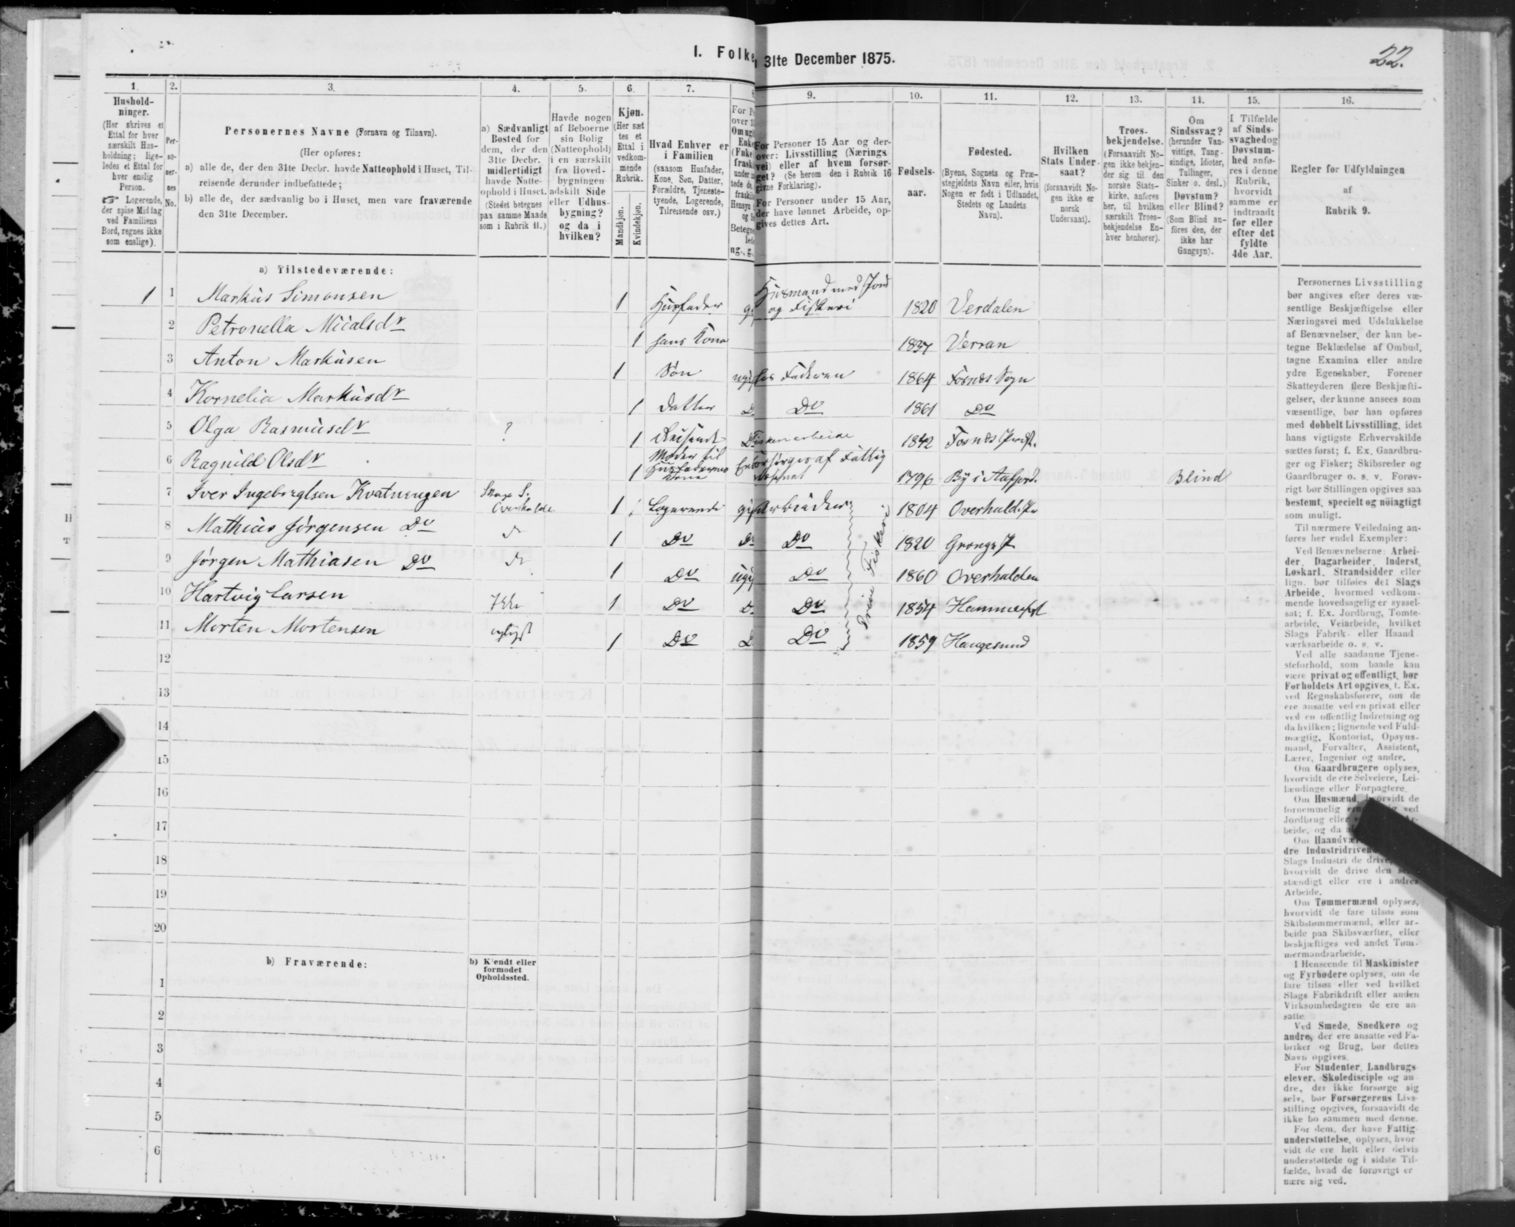 22.
I. Folke
31te December 1875.
1. 2. 3. 4. 5. 6. 7. 8
9. 10. 11. 12. 13. 14. 15. 16.
Hushold-
ninger.
(Her skrives et
Ettal for hver
særskilt Hus-
holdning; lige-
ledes et Ettal for
hver enslig
Person.
Logerende,
der spise Middag
ved Familiens
Bord, regnes ikke
som enslige).
Per-
so-
ner-
nes
No.
Personernes Navne (Fornavn og Tilnavn).
(Her opføres:
a) alle de, der den 31te Decbr. havde Natteophold i Huset, Til-
reisende derunder indbefattede;
b) alle de, der sædvanlig bo i Huset, men vare fraværende
den 31te December.
a) Sædvanligt
Bosted for
dem, der den
31te Decbr.
midlertidigt
havde Natte-
ophold i Huset.
(Stedet betegnes
paa samme Maade
som i Rubrik 11.)
Havde nogen
af Beboerne
sin Bolig
(Natteophold)
i en særskilt
fra Hoved-
bygningen
adskilt Side
eller Udhus-
bygning?
og da i
hvilken?
Kjøn.
(Her sæt
tes et
Ettal i
vedkom-
mende
Rubrik.
Mandkjøn.
Kvindekjøn.
Hvad Enhver er
i Familien
(saasom Husfader,
Kone, Søn, Datter,
Forældre, Tjeneste-
tyende, Logerende,
Tilreisende osv.)
For Personer 15 Aar og der-
over: Livsstilling (Nærings
vei) eller af hvem forsør-
get? (Se herom den i Rubrik 16
givne Forklaring).
For Personer under 15 Aar,
der have lønnet Arbeide, op-
gives dettes Art.
Fødsels-
aar.
Fødested.
(Byens, Sognets og Præ-
stegjeldets Navn eller, hvis
Nogen er født i Udlandet,
Stedets og Landets
Navn).
Hvilken
Stats Under-
saat?
(forsaavidt No-
gen ikke er
norsk
Undersaat).
Troes-
bekjendelse.
(Forsaavidt No-
gen ikke bekjen-
der sig til den
norske Stats-
kirke, anføres
her, til hvilken
særskilt Troes-
bekjendelse En-
hver henhører).
Om
Sindssvag?
(herunder Van-
vittige, Tung-
sindige, Idioter,
Tullinger,
Sinker o. desl.)
Døvstum?
eller Blind?
(Som Blind an-
føres den, der
ikke har
Gangsyn).
I Tilfælde
af Sinds-
svaghed og
Døvstum-
hed anfø-
res i denne
Rubrik,
hvorvidt
samme er
indtraadt
før eller
efter det
fyldte
4de Aar.
Regler for Udfyldningen
af
Rubrik 9.
a) Tilstedeværende:
1 1 Markus Simonsen 1 Husfader Husmand med Jord og Fiskeri 1820 Verdalen
2 Petronella 1 hans Kone 1837 Verran
3 Anton Markusen 1 Søn Faderen 1864 Fosnes Sogn
4 Kornelia Markusdr 1 Datter Do 1861 Do
5 Olga Rasmusdr ? 1 1842
6 Ragnild Olsdr 1 Moder til Husfaderens Kone 1796 Blind
7 Iver Kvatningen 1 Logerende 1804
8 Mathias Jørgensen Do 1 Do Do 1820
9 Jørgen Mathiasen Do 1 Do ugi Do 1860 Overhalden
10 Hartvig Larsen Ikke 1 Do Do 1854 Hammerfest
11 Morten Mortensen oplyst 1 Do Do 1859 Haugesund
12
13
14
15
16
17
18
19
20
b) Fraværende:
b) Kjendt eller
formodet
Opholdssted.
1
2
3
4
5
6
Personernes Livsstilling
bør angives efter deres væ-
sentlige Beskjæftigelse eller
Næringsvei med Udelukkelse
af Benævnelser, der kun be-
tegne Beklædelse af Ombud,
tagne Examina eller andre
ydre Egenskaber. Forener
Skatteyderen flere Beskjæfti-
gelser, der kunne ansees som
væsentlige, bør han opføres
med dobbelt Livsstilling, idet
hans vigtigste Erhvervskilde
sættes først; f. Ex. Gaardbru-
ger og Fisker; Skibsreder og
Gaardbruger o. s. v. Forøv-
rigt bør Stillingen opgives saa
bestemt, specielt og nøiagtigt
som muligt.
Til nærmere Veiledning an-
føres her endel Exempler:
Ved Benævnelserne: Arbei-
der, Dagarbeider, Inderst,
Løskarl, Strandsidder eller
lign. bør tilføies det Slags
Arbeide, hvormed vedkom-
mende hovedsagelig er syssel-
sat; f. Ex. Jordbrug, Tomte-
arbeide, Veiarbeide, hvilket
Slags Fabrik- eller Haand
værksarbeide o. s. v.
Ved alle saadanne Tjene-
steforhold, som baade kan
være privat og offentligt, bør
Forholdets Art opgives, f. Ex.
ved Regnskabsførere, om de
ere ansatte ved en privat eller
ved en offentlig Indretning og
da hvilken; lignende ved Fuld-
mægtig, Kontorist, Opsyns-
mand, Forvalter, Assistent,
Lærer, Ingeniør og andre.
Om Gaardbrugere oplyses,
hvorvidt de ere Selveiere, Lei-
lændinge eller Forpagtere.
Om Husmænd, hvorvidt de
fornemmelig
Jordbrug eller
beide, og da
dre Industridriven
Slags Industri de drive,
hvorvidt de drive den
stændigt eller ere i andres
Arbeide.
Om Tømmermænd oplyses,
hvorvidt de fare tilsøs som
Skibstømmermænd, eller ar-
beide paa Skibsværfter, eller
beskjæftiges ved andet Tøm-
mermandsarbeide.
I Henseende til Maskinister
og Fyrbødere oplyses, om de
fare tilsøs eller ved hvilket
Slags Fabrikdrift eller anden
Virksomhedsgren de ere an-
satte.
Ved Smede, Snedkere og
andre, der ere ansatte ved Fa-
briker og Brug, bør dettes
Navn opgives.
For Studenter, Landbrugs
elever, Skoledisciple og an
dre, der ikke forsørge sig
selv, bør Forsørgerens Livs-
stilling opgives, forsaavidt de
ikke bo sammen med denne.
For dem, der have Fattig
understøttelse, oplyses, hvor
vidt de ere helt eller delvis
understøttede og i sidste Til-
fælde, hvad de forøvrigt er
nære sig ved.